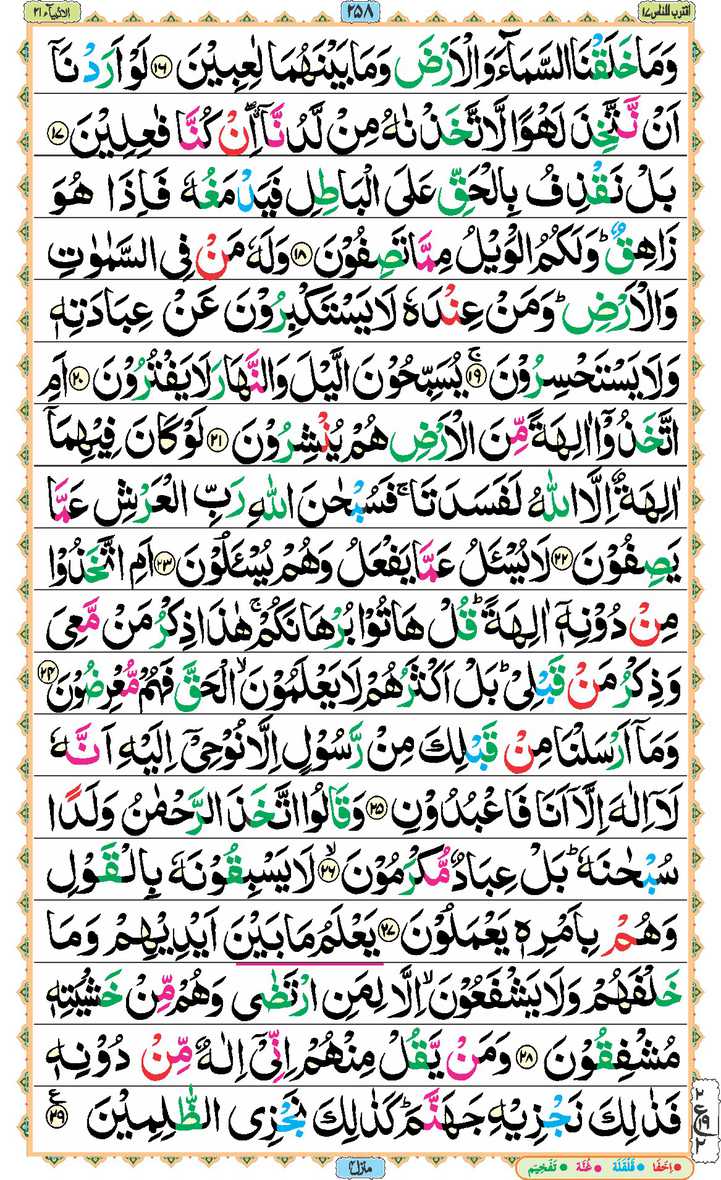 اقترب للناس ۱۷
۲۵۸
الانبیآء ۲۱
وَمَا خَلَقْنَا السَّمَآءَ وَالْاَرْضَ وَمَا بَيْنَهُمَا لٰعِبِيْنَ ۱۶ لَوْ اَرَدْنَاۤ
اَنْ نَّتَّخِذَ لَهْوًا لَّاتَّخَذْنٰهُ مِنْ لَّدُنَّاۤ ۖ اِنْ كُنَّا فٰعِلِيْنَ ۱۷
بَلْ نَقْذِفُ بِالْحَقِّ عَلَى الْبَاطِلِ فَيَدْمَغُهٗ فَاِذَا هُوَ
زَاهِقٌ ؕ وَلَكُمُ الْوَيْلُ مِمَّا تَصِفُوْنَ ۱۸ وَلَهٗ مَنْ فِى السَّمٰوٰتِ
وَالْاَرْضِ ؕ وَمَنْ عِنْدَهٗ لَا يَسْتَكْبِرُوْنَ عَنْ عِبَادَتِهٖ
وَلَا يَسْتَحْسِرُوْنَ ۚ ۱۹ يُسَبِّحُوْنَ الَّيْلَ وَالنَّهَارَ لَا يَفْتُرُوْنَ ۲۰ اَمِ
اتَّخَذُوْۤا اٰلِهَةً مِّنَ الْاَرْضِ هُمْ يُنْشِرُوْنَ ۲۱ لَوْ كَانَ فِيْهِمَاۤ
اٰلِهَةٌ اِلَّا اللّٰهُ لَفَسَدَتَا ۚ فَسُبْحٰنَ اللّٰهِ رَبِّ الْعَرْشِ عَمَّا
يَصِفُوْنَ ۲۲ لَا يُسْئَلُ عَمَّا يَفْعَلُ وَهُمْ يُسْئَلُوْنَ ۲۳ اَمِ اتَّخَذُوْا
مِنْ دُوْنِهٖۤ اٰلِهَةً ؕ قُلْ هَاتُوْا بُرْهَانَكُمْ ۚ هٰذَا ذِكْرُ مَنْ مَّعِىَ
وَذِكْرُ مَنْ قَبْلِىْ ؕ بَلْ اَكْثَرُهُمْ لَا يَعْلَمُوْنَ ۙ الْحَقَّ فَهُمْ مُّعْرِضُوْنَ ۲۴
وَمَاۤ اَرْسَلْنَا مِنْ قَبْلِكَ مِنْ رَّسُوْلٍ اِلَّا نُوْحِىْۤ اِلَيْهِ اَنَّهٗ
لَاۤ اِلٰهَ اِلَّاۤ اَنَا فَاعْبُدُوْنِ ۲۵ وَقَالُوا اتَّخَذَ الرَّحْمٰنُ وَلَدًا
سُبْحٰنَهٗ ؕ بَلْ عِبَادٌ مُّكْرَمُوْنَ ۙ ۲۶ لَا يَسْبِقُوْنَهٗ بِالْقَوْلِ
وَهُمْ بِاَمْرِهٖ يَعْمَلُوْنَ ۲۷ يَعْلَمُ مَا بَيْنَ اَيْدِيْهِمْ وَمَا
خَلْفَهُمْ وَلَا يَشْفَعُوْنَ ۙ اِلَّا لِمَنِ ارْتَضٰى وَهُمْ مِّنْ خَشْيَتِهٖ
مُشْفِقُوْنَ ۲۸ وَمَنْ يَّقُلْ مِنْهُمْ اِنِّىْۤ اِلٰهٌ مِّنْ دُوْنِهٖ
فَذٰلِكَ نَجْزِيْهِ جَهَنَّمَ ؕ كَذٰلِكَ نَجْزِى الظّٰلِمِيْنَ ۲۹ ع
منزل ۴
اِخفَا • قَلقَلَه • غُنَّه • تَفخِیم